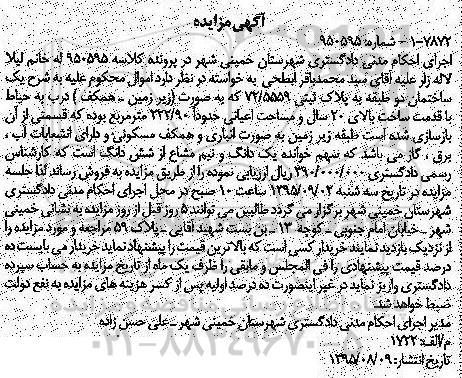 آگهی مزایده
۱-۷۸۷۲ - شماره: ۹۵۰۵۹۵
اجرای احکام مدنی دادگستری شهرستان خمینی شهر در پرونده کلاسه ۹۵۰۵۹۵ له خانم لیلا
لاله زار علیه آقای سید محمدباقر ابطحی به خواسته در نظر دارد اموال محکوم علیه به شرح یک
ساختمان دو طبقه به پلاک ثبتی ۷۲/۵۵۵۹ که به صورت (زیر زمین - همکف) درب به حیاط
با قدمت ساخت بالای ۲۰ سال و مساحت اعیانی حدوداً ۲۲۲/۹۰ مترمربع بوده که قسمتی از آن
بازسازی شده است طبقه زیر زمین به صورت انباری و همکف مسکونی و دارای انشعابات آب،
برق، گاز می باشد که سهم خوانده یک دانگ و نیم مشاع از شش دانگ است که کارشناس
رسمی دادگستری ۳۹۰/۰۰۰/۰۰۰ ریال ارزیابی نموده را از طریق مزایده به فروش رساند لذا جلسه
مزایده در تاریخ سه شنبه ۱۳۹۵/۰۹/۰۲ ساعت ۱۰ صبح در محل اجرای احکام مدنی دادگستری
شهرستان خمینی شهر برگزار می گردد طالبین می توانند ۵ روز قبل از روز مزایده به نشانی خمینی
شهر - خیابان امام جنوبی - کوچه ۱۳ - بن بست شهید آقایی - پلاک ۵۹ مراجعه و مورد مزایده را
از نزدیک بازدید نمایند خریدار کسی است که بالاترین قیمت را پیشنهاد نماید خریدار می بایست ده
درصد قیمت پیشنهادی را فی المجلس و مابقی را ظرف یک ماه از تاریخ مزایده به حساب سپرده
دادگستری واریز نماید در غیر اینصورت ده درصد اولیه پس از کسر هزینه های مزایده به نفع دولت
ضبط خواهد شد.
مدیر اجرای احکام مدنی دادگستری شهرستان خمینی شهر - علی حسن زاده
م/الف: ۱۷۲۲
تاریخ انتشار: ۱۳۹۵/۰۸/۰۹
۰۲۱-۸۸۳۴۹۶۷۰-۵